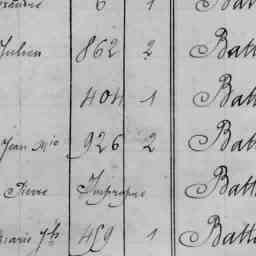 6 1 Batt
Julien 862 2 Batt
404 1 Batt
Jean Mie 926 2 Batt
Pierre Impropre Batt
Marie Jh 459 1 Batt